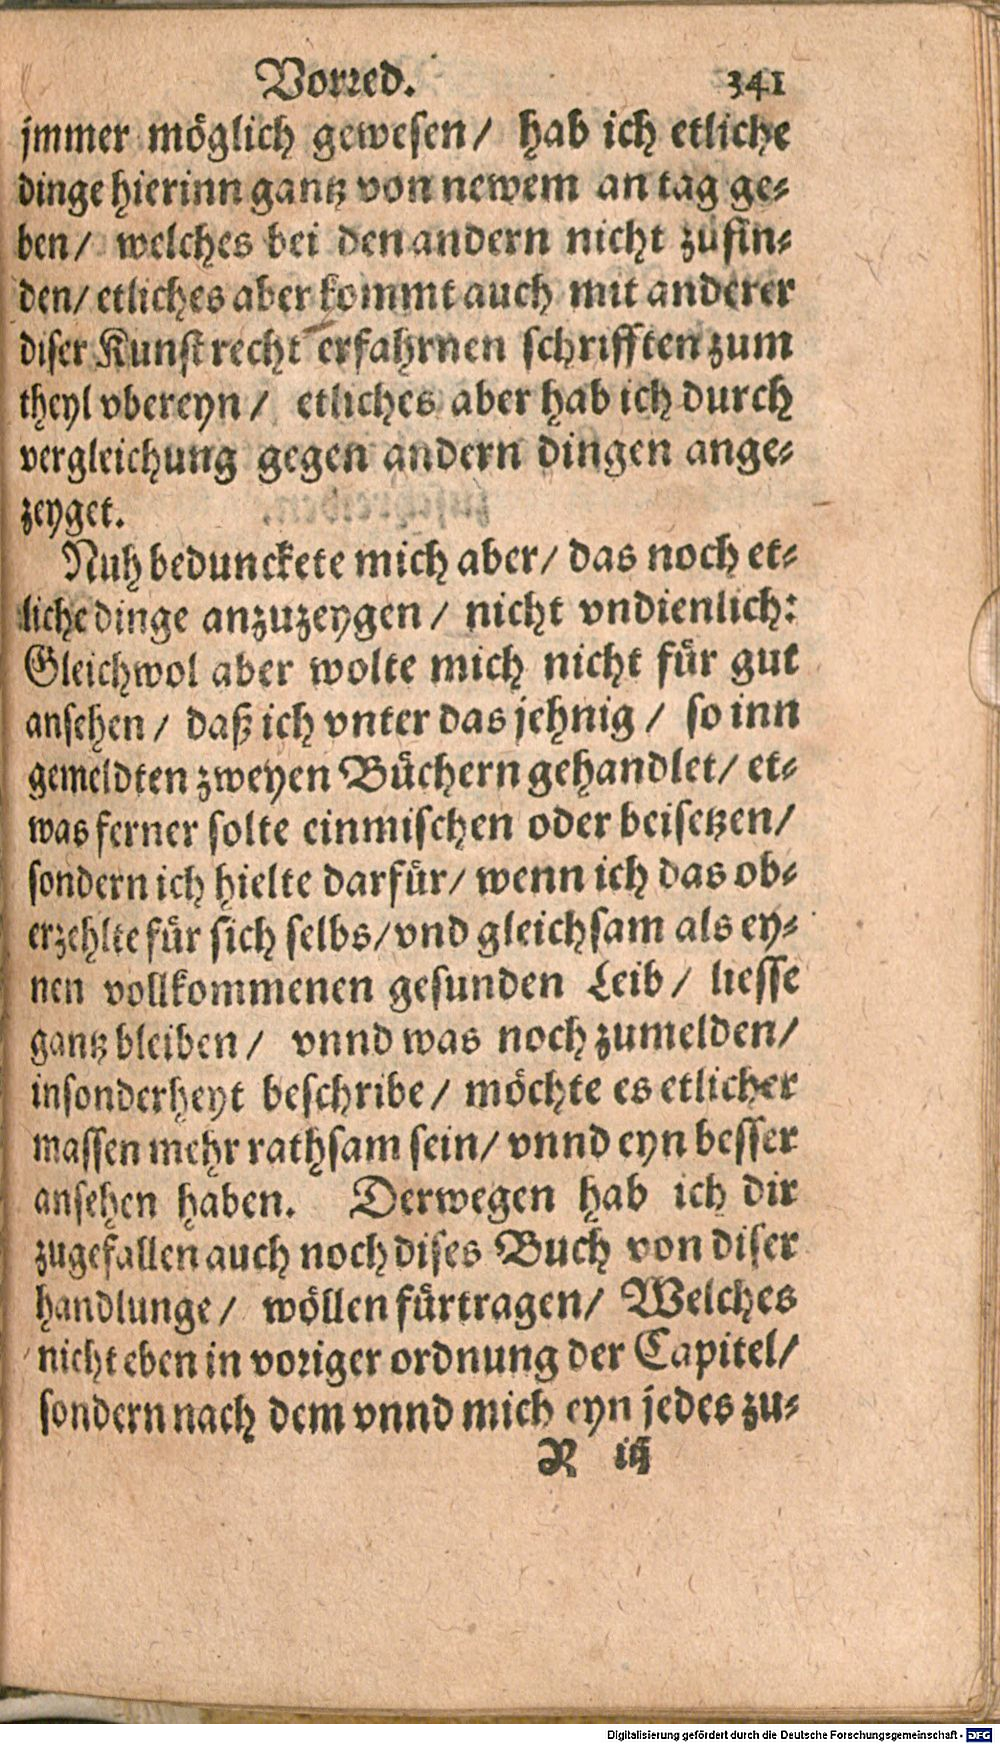 Vorred. 341
jmmer möglich gewesen/ hab ich etliche
dinge hierinn gantz von newem an tag ge-
ben/ welches bei den andern nicht zufin-
den/ etliches aber kommt auch mit anderer
diser Kunst recht erfahrnen schrifften zum
theyl vbereyn/ etliches aber hab ich durch
vergleichung gegen andern dingen ange-
zeyget.
Nuh beduncktete mich aber/ das noch et-
liche dinge anzuzeygen/ nicht vndienlich:
Gleichwol aber wolte mich nicht für gut
ansehen/ daß ich vnter das jehnig/ so inn
gemeldten zweyen Büchern gehandlet/ et-
was ferner solte einmischen oder beisetzen/
sondern ich hielte darfür/ wenn ich das ob-
erzehlte für sich selbs/ vnd gleichsam als ey-
nen vollkommenen gesunden Leib/ liesse
gantz bleiben/ vnnd was noch zumelden/
insonderheyt beschribe/ möchte es etlicher
massen mehr rathsam sein/ vnnd eyn besser
ansehen haben. Derwegen hab ich dir
zugefallen auch noch dises Buch von diser
handlunge/ wöllen fürtragen/ Welches
nicht eben in voriger ordnung der Capitel/
sondern nach dem vnnd mich eyn jedes zu-
R iij
Digitalisierung gefördert durch die Deutsche Forschungsgemeinschaft - DFG